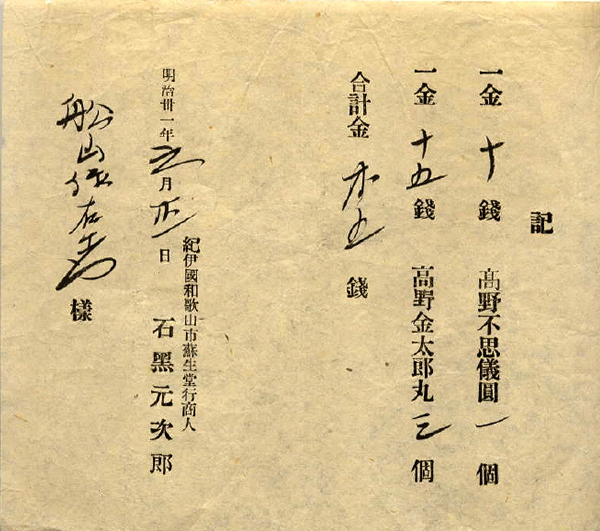 記
一金 十 錢 髙野不思儀圓 一 個
一金 十五 錢 高野金太郎丸 三 個
合計金 廿五 錢
明治卅一年 月 日
紀伊國和歌山市蘇生堂行商人
石黑元次郎
船山 右衛門 樣